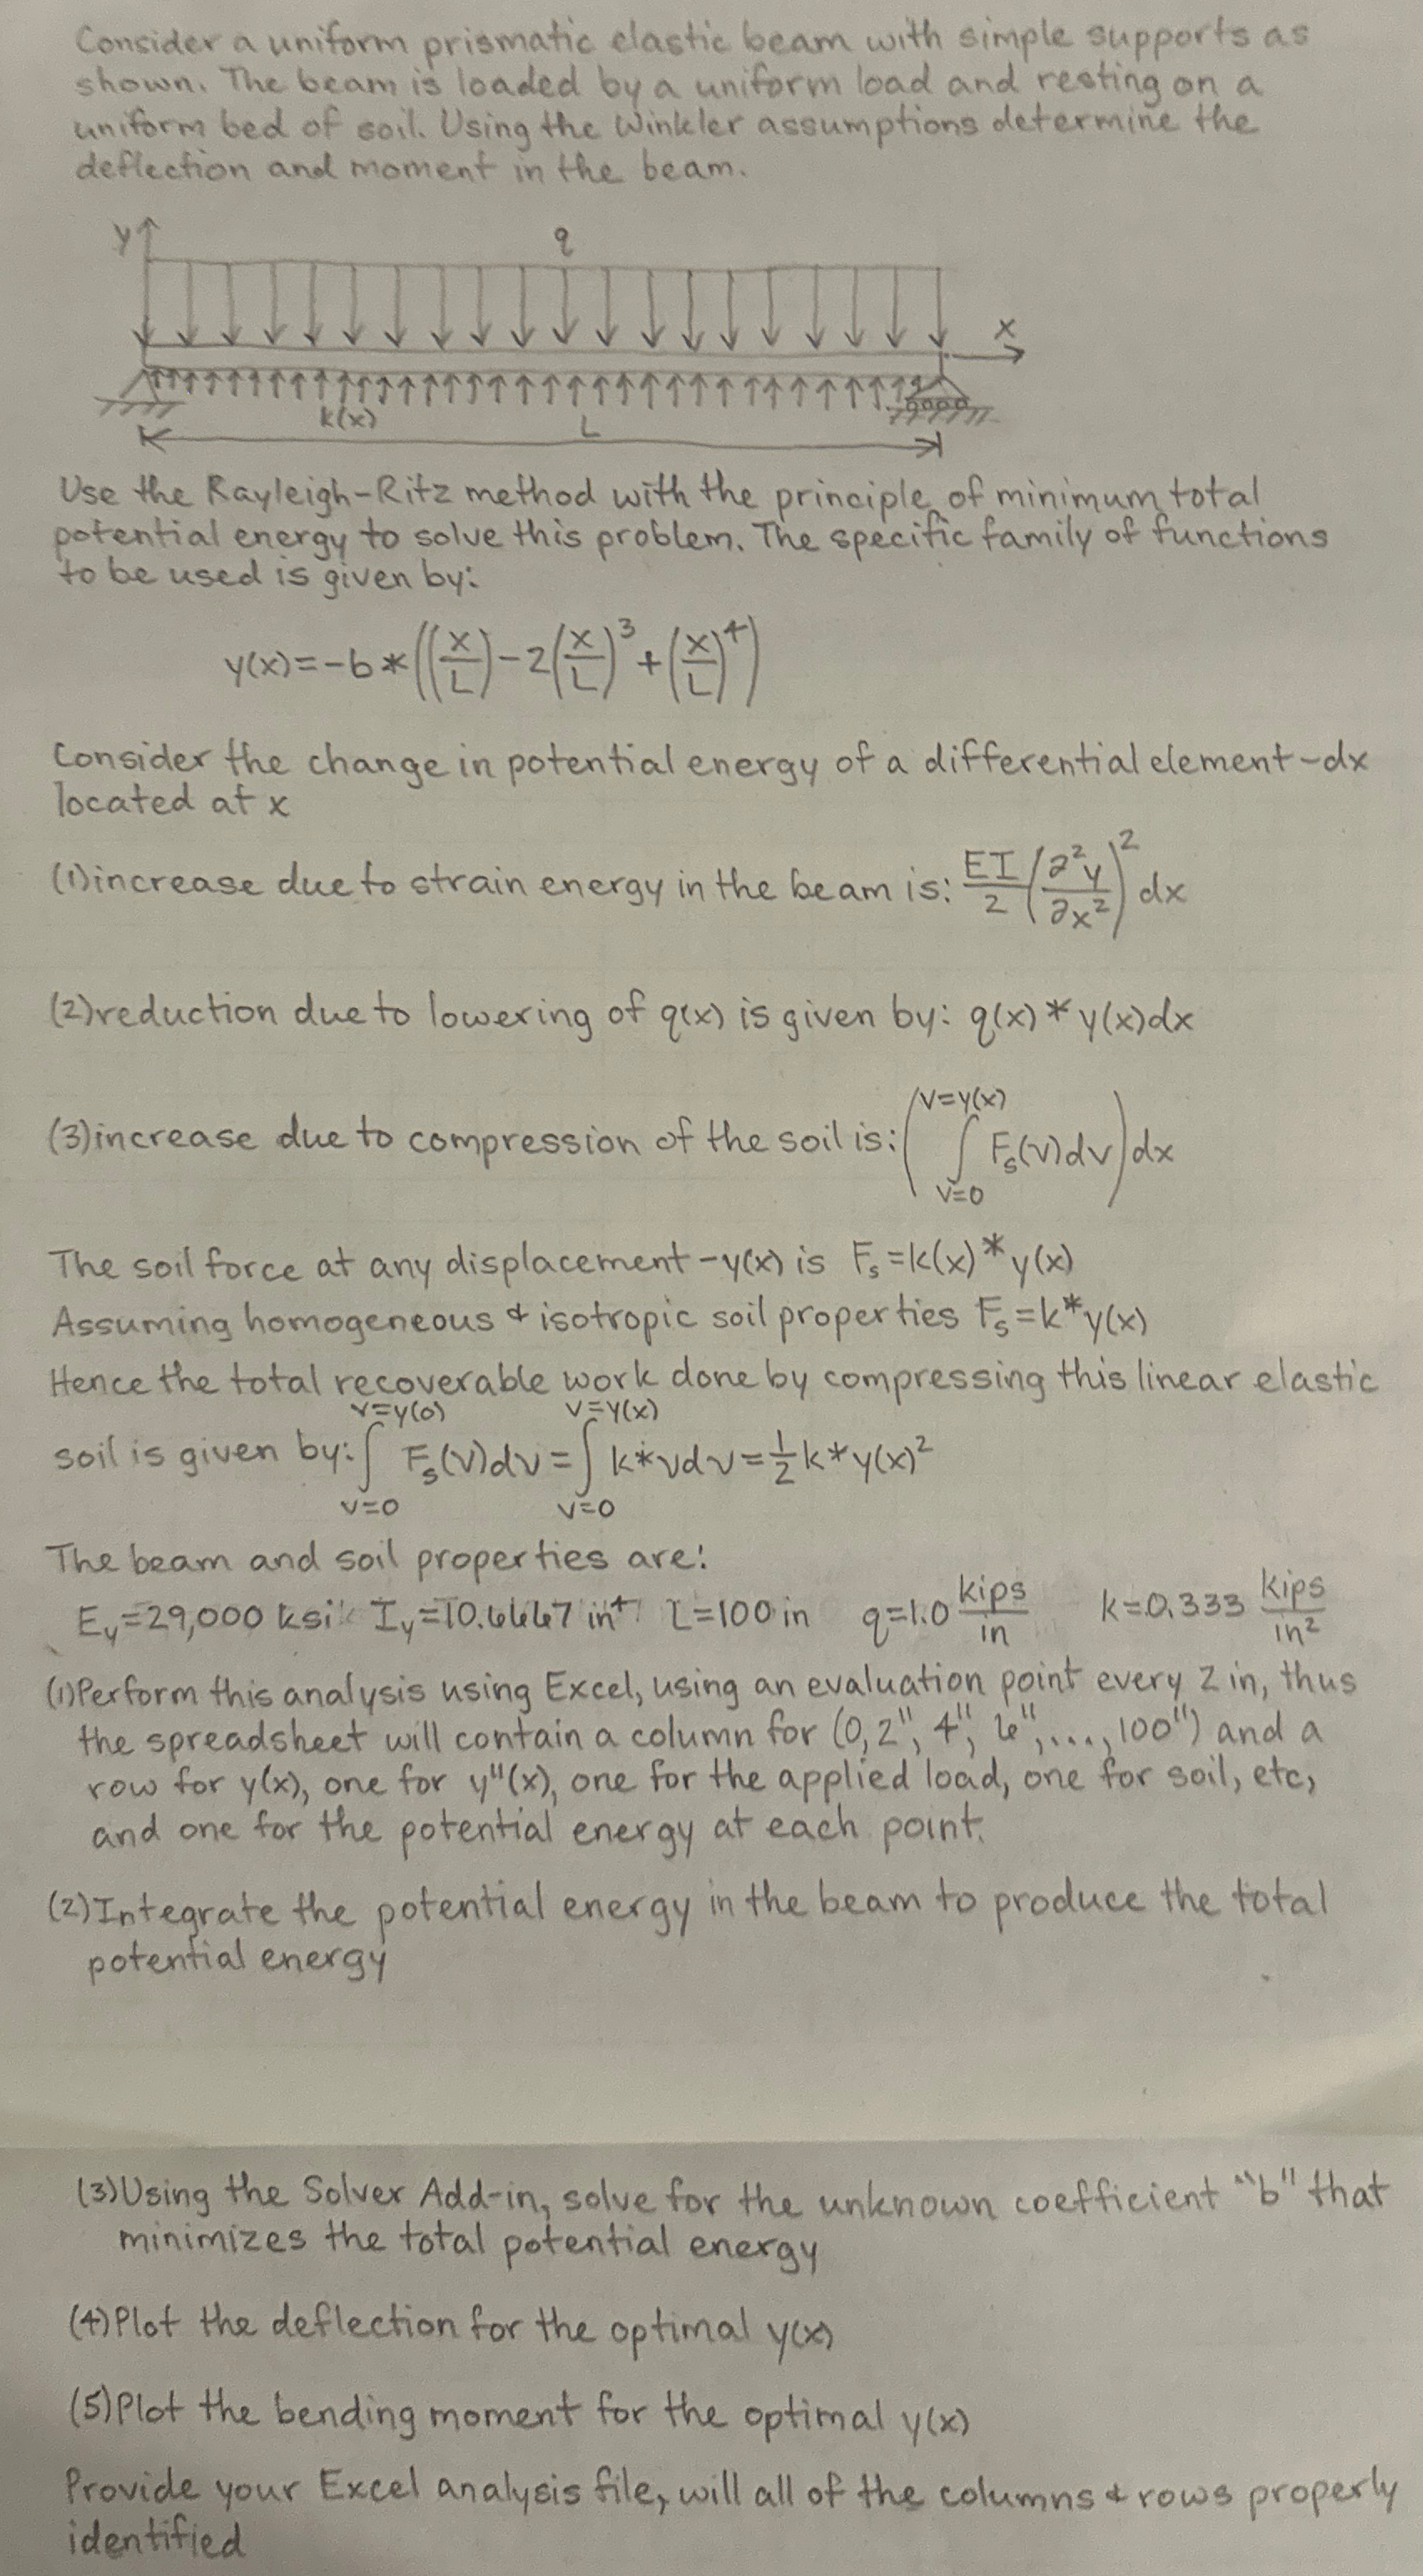 Consider a uniform prismatic elastic beam with simple supports as
shown. The beam is loaded by a uniform load and resting on a
uniform bed of soil. Using the Winkler assumptions determine the
deflection and moment in the beam.
y
q
x
k(x)
L
Use the Rayleigh-Ritz method with the principle of minimum total
potential energy to solve this problem. The specific family of functions
to be used is given by:
y(x)=-b*((x/L)-2(x/L)³+(x/L)⁴)
Consider the change in potential energy of a differential element-dx
located at x
(1)increase due to strain energy in the beam is: EI/2(∂²y/∂x²)²dx
(2)reduction due to lowering of q(x) is given by: q(x)*y(x)dx
(3)increase due to compression of the soil is: (∫_{v=0}^{v=y(x)} F_s(v)dv)dx
The soil force at any displacement-y(x) is F_s=k(x)*y(x)
Assuming homogeneous & isotropic soil properties F_s=k*y(x)
Hence the total recoverable work done by compressing this linear elastic
soil is given by: ∫_{v=0}^{v=y(0)} F_s(v)dv=∫_{v=0}^{v=y(x)} k*vdv=½k*y(x)²
The beam and soil properties are:
E_y=29,000 ksi I_y=10.6667 in⁴ L=100 in q=1.0 kips/in k=0.333 kips/in²
(1)Perform this analysis using Excel, using an evaluation point every 2 in, thus
the spreadsheet will contain a column for (0,2", 4", 6",...,100") and a
row for y(x), one for y"(x), one for the applied load, one for soil, etc,
and one for the potential energy at each point.
(2)Integrate the potential energy in the beam to produce the total
potential energy
(3)Using the Solver Add-in, solve for the unknown coefficient "b" that
minimizes the total potential energy
(4)Plot the deflection for the optimal y(x)
(5)Plot the bending moment for the optimal y(x)
Provide your Excel analysis file, will all of the columns & rows properly
identified